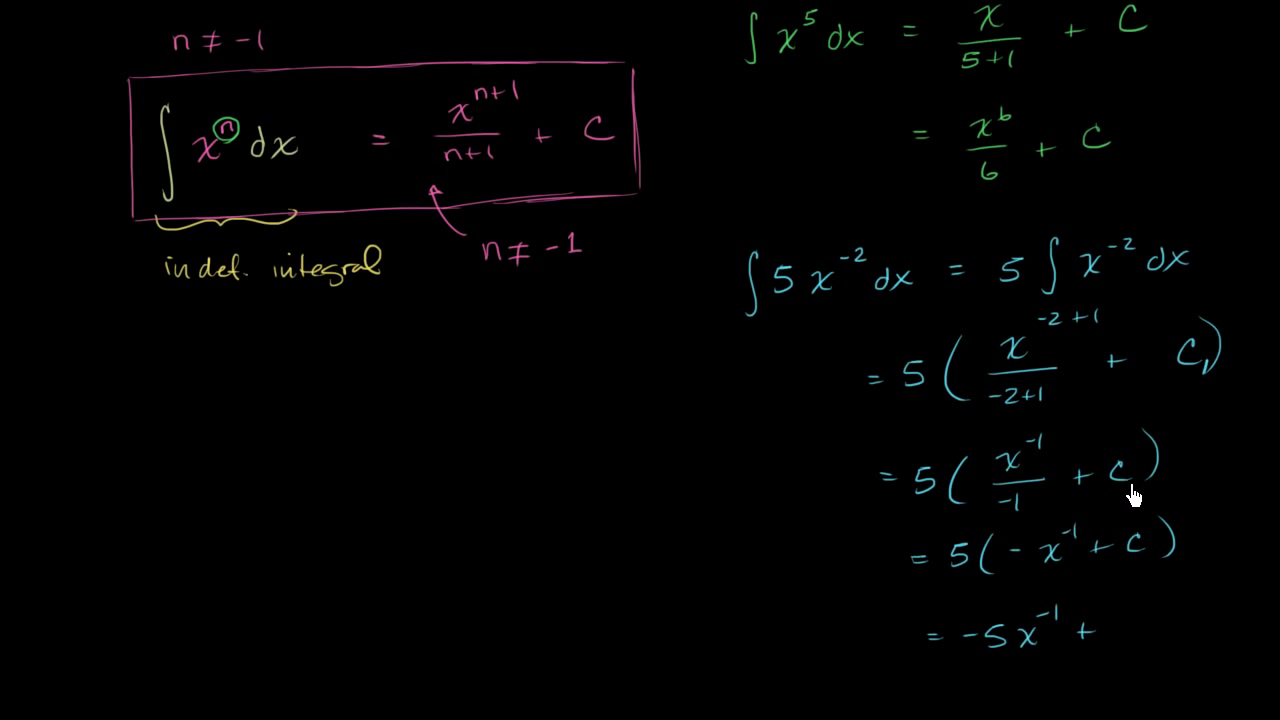 n ≠ -1
∫ xⁿ dx = xⁿ⁺¹/n+1 + C
n ≠ -1
indef. integral
∫ x⁵ dx = x/5+1 + C
= x⁶/6 + C
∫ 5 x⁻² dx = 5 ∫ x⁻² dx
= 5 ( x⁻²⁺¹/-2+1 + C₁)
= 5 ( x⁻¹/-1 + C )
= 5 ( - x⁻¹ + C )
= -5x⁻¹ +